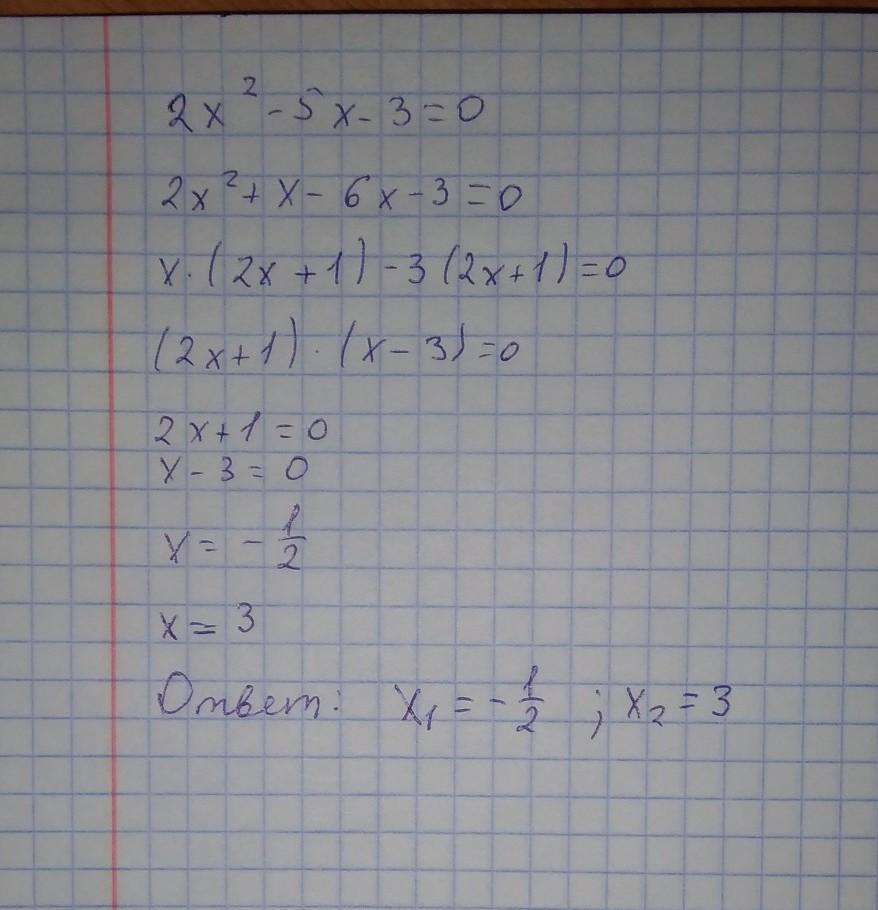 2x² - 5x - 3 = 0
2x² + x - 6x - 3 = 0
x · (2x + 1) - 3 (2x + 1) = 0
(2x + 1) · (x - 3) = 0
2x + 1 = 0
x - 3 = 0
x = - 1/2
x = 3
Ответ: x₁ = - 1/2 ; x₂ = 3